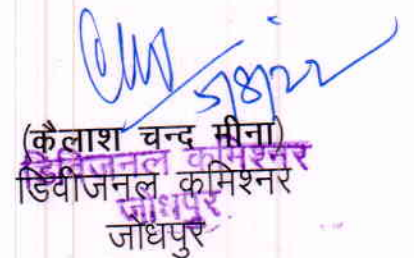 5/8/22
(कैलाश चन्द मीना)
डिवीजनल कमिश्नर
डिवीजनल कमिश्नर
जोधपुर
जोधपुर